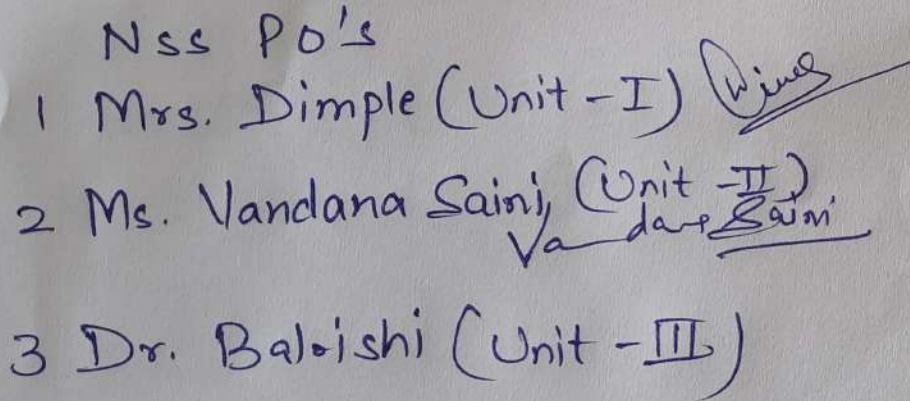 Nss PO's
1 Mrs. Dimple (Unit - I)
2 Ms. Vandana Saini, (Unit - II)
Vandana Saini
3 Dr. Balrishi (Unit - III)